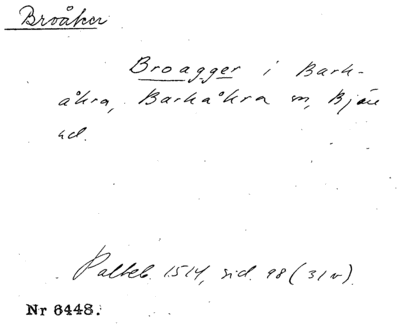 Broåker
Broagger i Bark-
åkra, Barkåkra sn, Bjäre
hd.
Palteb. 1514, sid. 98 (31v).
Nr 6448.